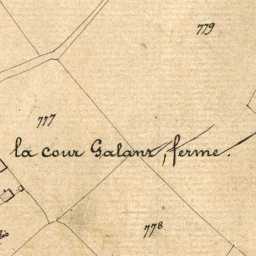 779
777
la cour Galant, ferme.
778